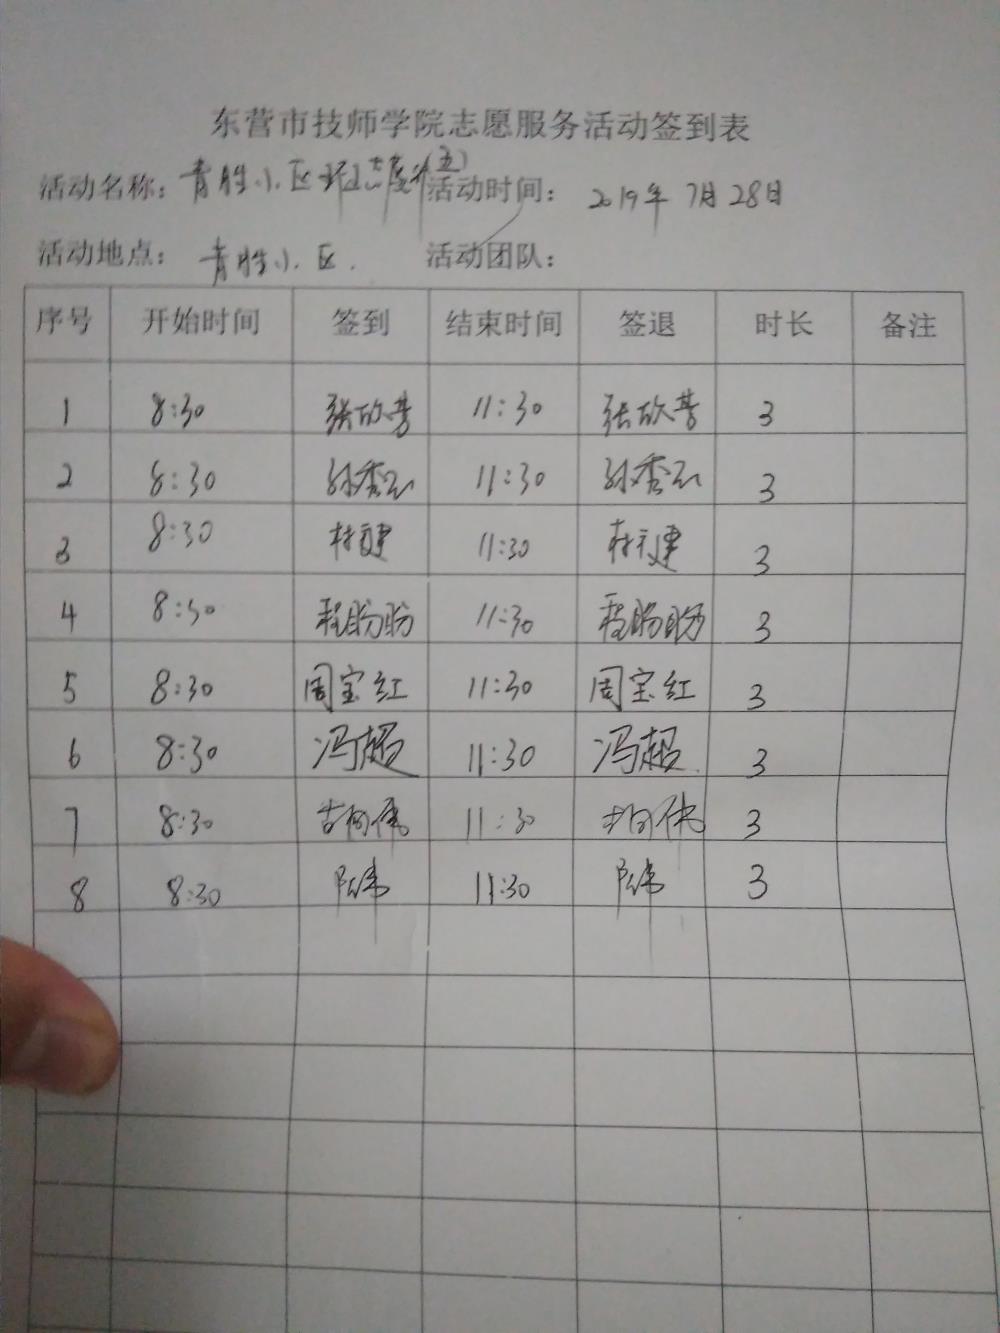 东营市技师学院志愿服务活动签到表
活动名称：青胜小区 活动时间：2019年7月28日
(五)
活动地点：青胜小区. 活动团队：
序号 开始时间 签到 结束时间 签退 时长 备注
1 8:30 张欣芳 11:30 张欣芳 3
2 8:30 孙秀云 11:30 孙秀云 3
3 8:30 11:30 3
4 8:30 程盼盼 11:30 程盼盼 3
5 8:30 周宝红 11:30 周宝红 3
6 8:30 冯超 11:30 冯超 3
7 8:30 11:30 3
8 8:30 陈伟 11:30 陈伟 3